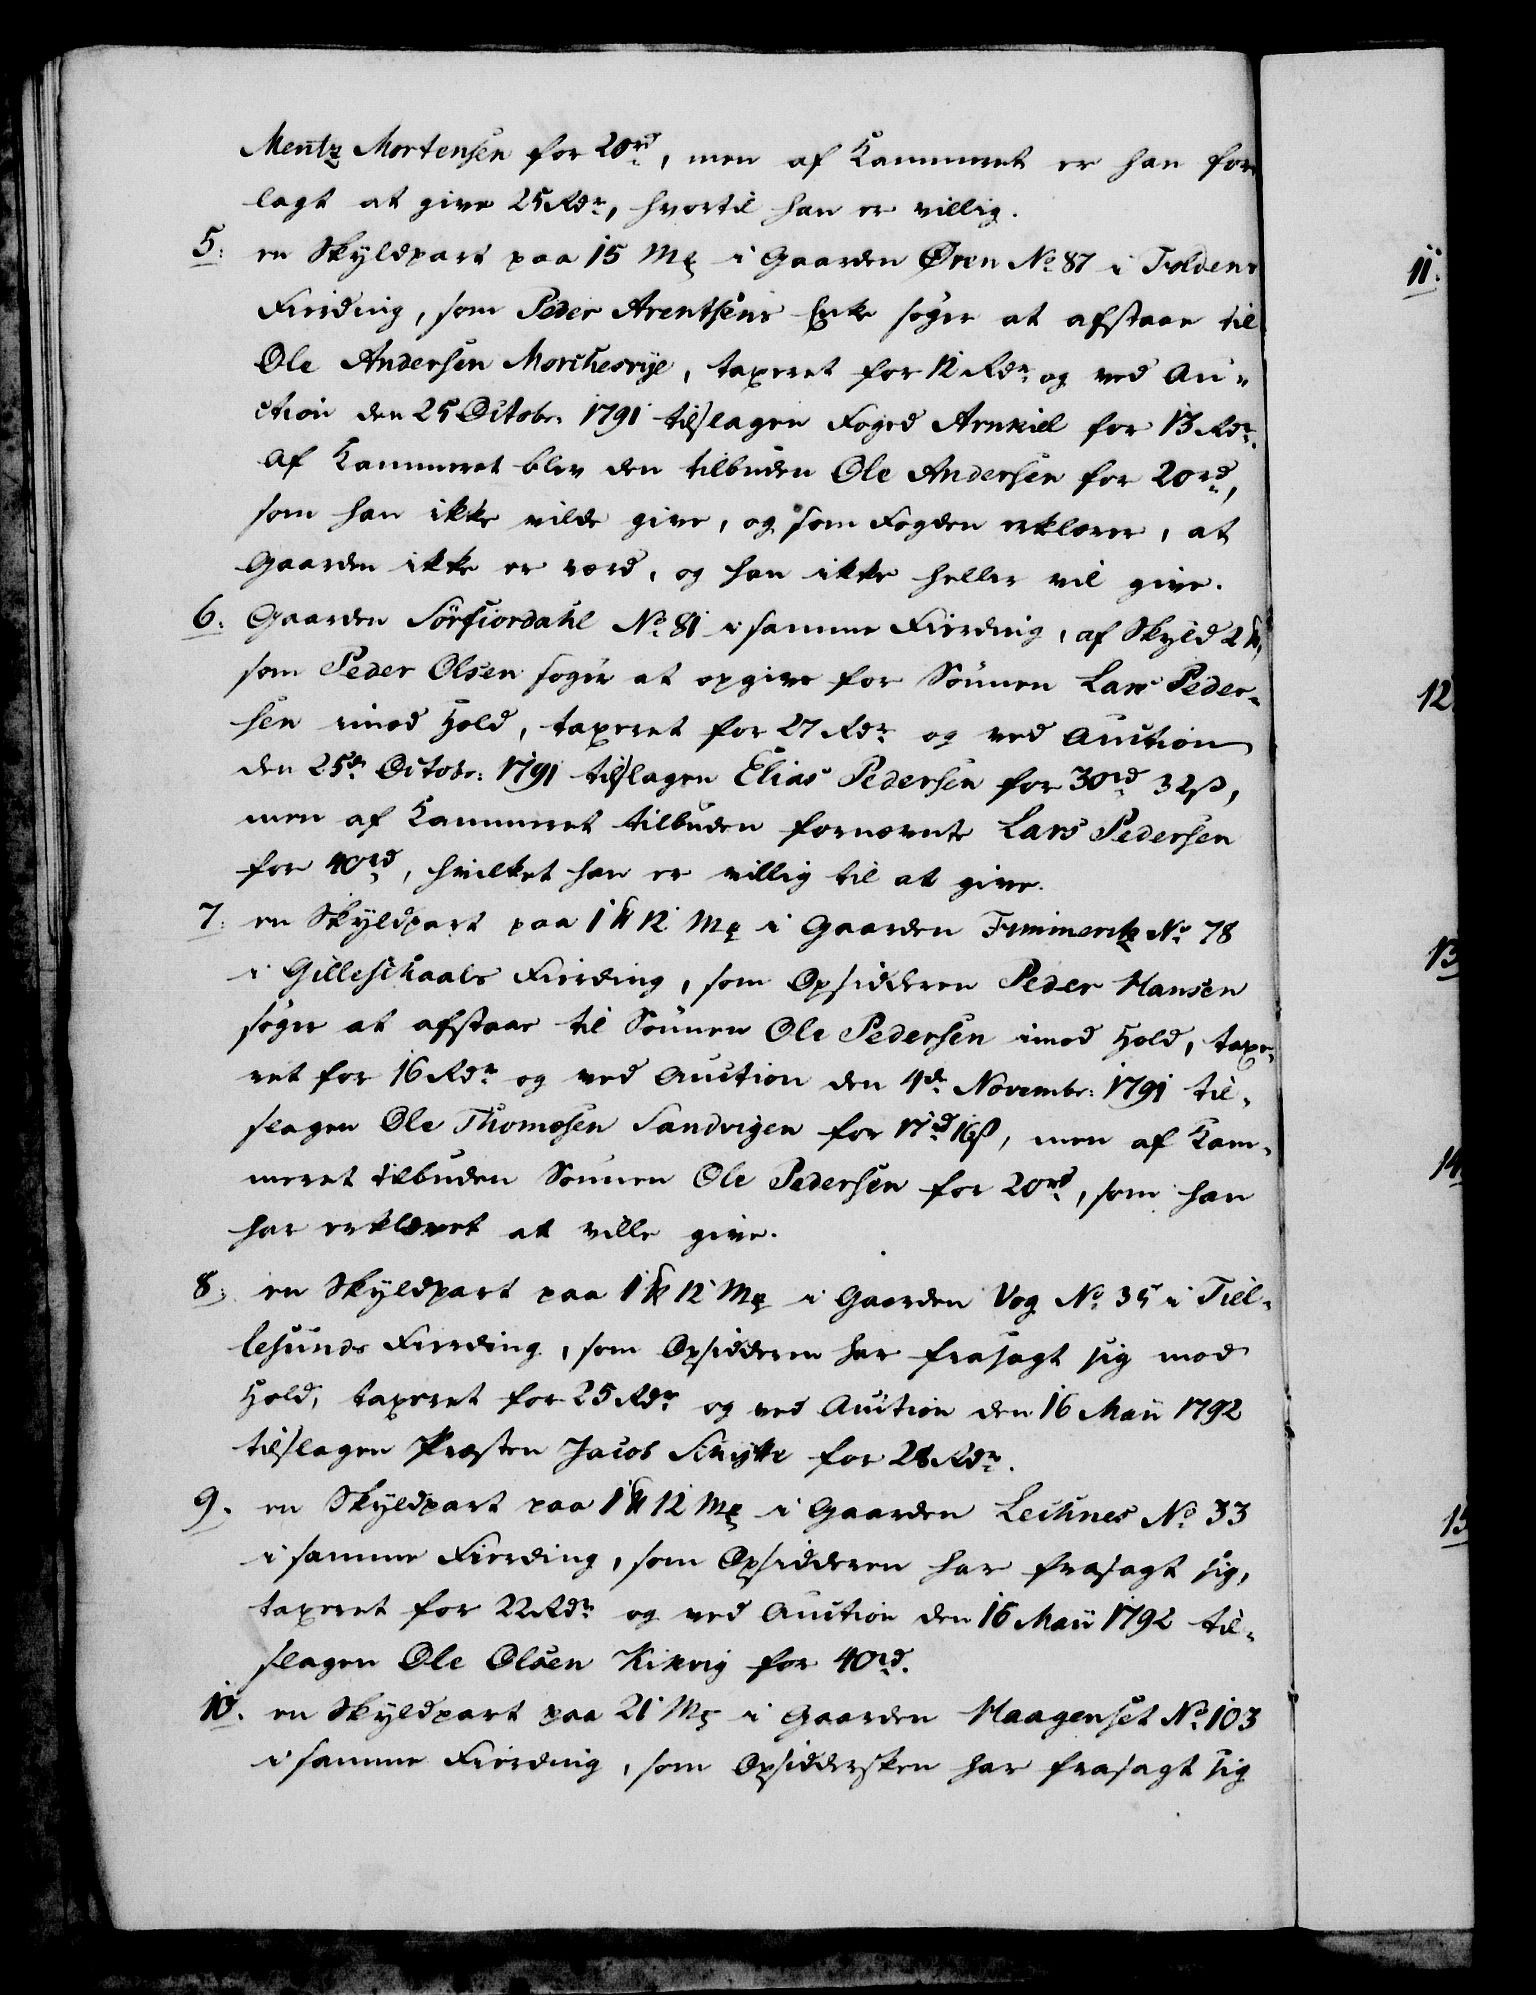 Mentz Mortensen for 20rd, men af Kammeret er han fore
lagt at give 25 Rdr, hvortil han er villig.
5. en Skyldpart paa 15 Mk i Gaarden Øren No 87 i Foldens
Fierding, som Peder Arentsens Enke søger at afstaae til
Ole Andersen Morchesvje, taxeret for 12 Rdr og ved Au-
ction den 25 Octobr: 1791 tilslagen Foged Arnkiel for 13 Rdr.
Af Kammeret blev den tilbuden Ole Andersen for 20rd,
som han ikke vilde give, og som Fogden erklærer, at
Gaarden ikke er værd, og han ikke heller vil give.
6. Gaarden Sörfiordahl No 81 i samme Fierding, af Skyld 2 ℔,
som Peder Olsen søger at opgive for Sönnen Lars Peder-
sen imod Hold, taxeret for 27 Rdr og ved Auction
den 25de Octobr: 1791 tilslagen Elias Pedersen for 30rd 32ß,
men af Kammeret tilbuden fornævnte Lars Pedersen
for 40rd, hvilket han er villig til at give.
7. en Skyldpart paa 1 ℔ 12 Mk i Gaarden Finmeritz No 78
i Gilleschaals Fierding, som Opsidderen Peder Hansen
søger at afstaae til Sönnen Ole Pedersen imod Hold, taxe-
ret for 16 Rdr og ved Auction den 4de Novembr: 1791 til-
slagen Ole Thomesen Sandvigen for 17rd 16ß, men af Kam-
meret tilbuden Sönnen Ole Pedersen for 20rd, som han
har erklæret at ville give.
8. en Skyldpart paa 1 ℔ 12 Mk i Gaarden Vog No 35 i Tiel-
lesunds Fierding, som Opsidderen har frasagt sig mod
Hold, taxeret for 25 Rdr og ved Auction den 16 Maii 1792
tilslagen Præsten Jacob Schytte for 28 Rdr.
9. en Skyldpart paa 1 ℔ 12 Mk i Gaarden Lechnes No 33
i samme Fierding, som Opsidderen har frasagt sig,
taxeret for 22 Rdr og ved Auction den 16 Maii 1792 til-
slagen Ole Olsen Kikvig for 40rd.
10. en Skyldpart paa 21 Mk i Gaarden Haagenset No 103
i samme Fierding, som Opsiddersken har frasagt sig
11.
12
13
14
15